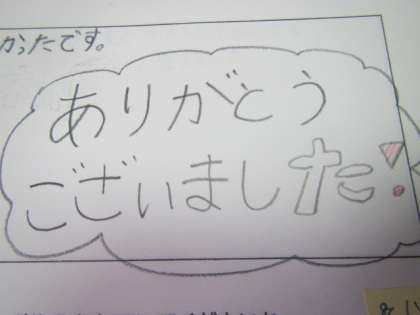 かったです。
ありがとう
ございました!